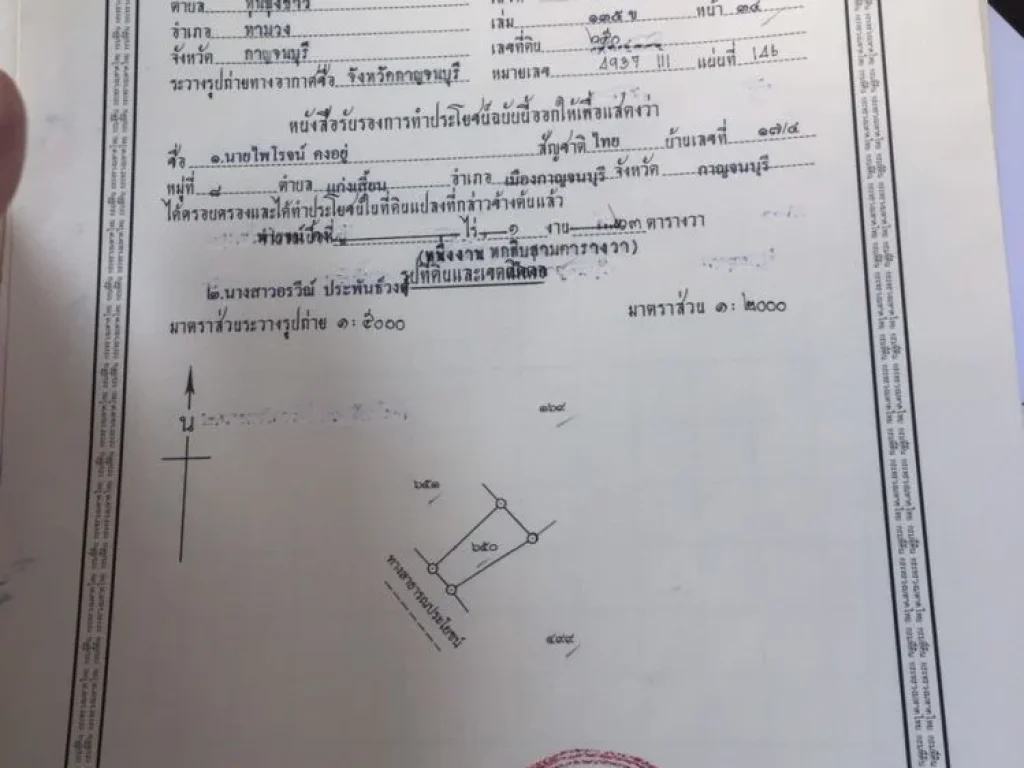 ตำบล
เล่ม ๑๓๕ ข หน้า ๓๔
อำเภอ ท่าม่วง
เลขที่ดิน ๖๕๐
จังหวัด กาญจนบุรี
หมายเลข 4937 III แผ่นที่ 146
ระวางรูปถ่ายทางอากาศชื่อ จังหวัดกาญจนบุรี
หนังสือรับรองการทำประโยชน์ฉบับนี้ออกให้เพื่อแสดงว่า
ชื่อ ๑.นายไพโรจน์ คงอยู่ สัญชาติ ไทย บ้านเลขที่ ๑๗/๔
หมู่ที่ ๘ ตำบล แก่งเสี้ยน อำเภอ เมืองกาญจนบุรี จังหวัด กาญจนบุรี
ได้ครอบครองและได้ทำประโยชน์ในที่ดินแปลงที่กล่าวข้างต้นแล้ว
ไร่ ๑ งาน ๖๓ ตารางวา
(หนึ่งงาน หกสิบสามตารางวา)
รูปที่ดินและเขตติดต่อ
๒.นางสาวอรวีณ์ ประพันธ์วงศ์
มาตราส่วนระวางรูปถ่าย ๑ : ๕๐๐๐
มาตราส่วน ๑ : ๒๐๐๐
น
๑๖๙
๖๕๑
๖๕๐
ทางสาธารณประโยชน์
๔๙๙